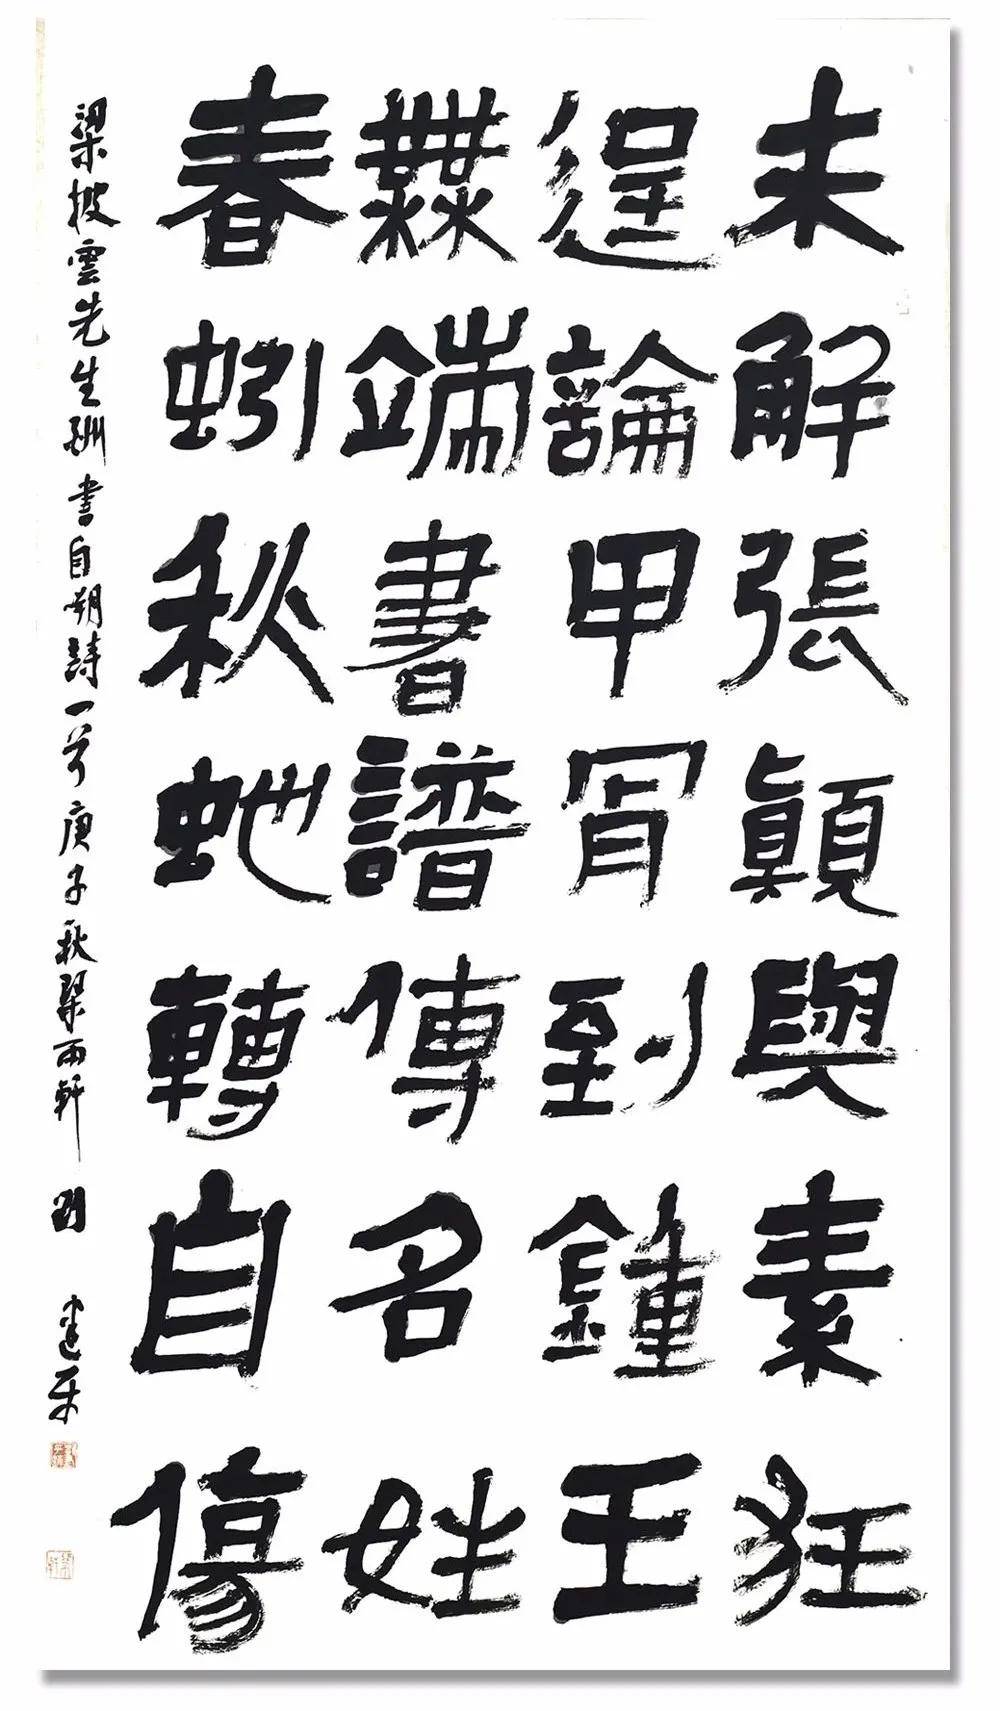 未解張顛與素狂
遑論甲骨到鍾王
無端書譜傳名姓
春蚓秋蛇轉自傷
梁披雲先生酬書自嘲詩一首庚子秋琹雨軒劉建平